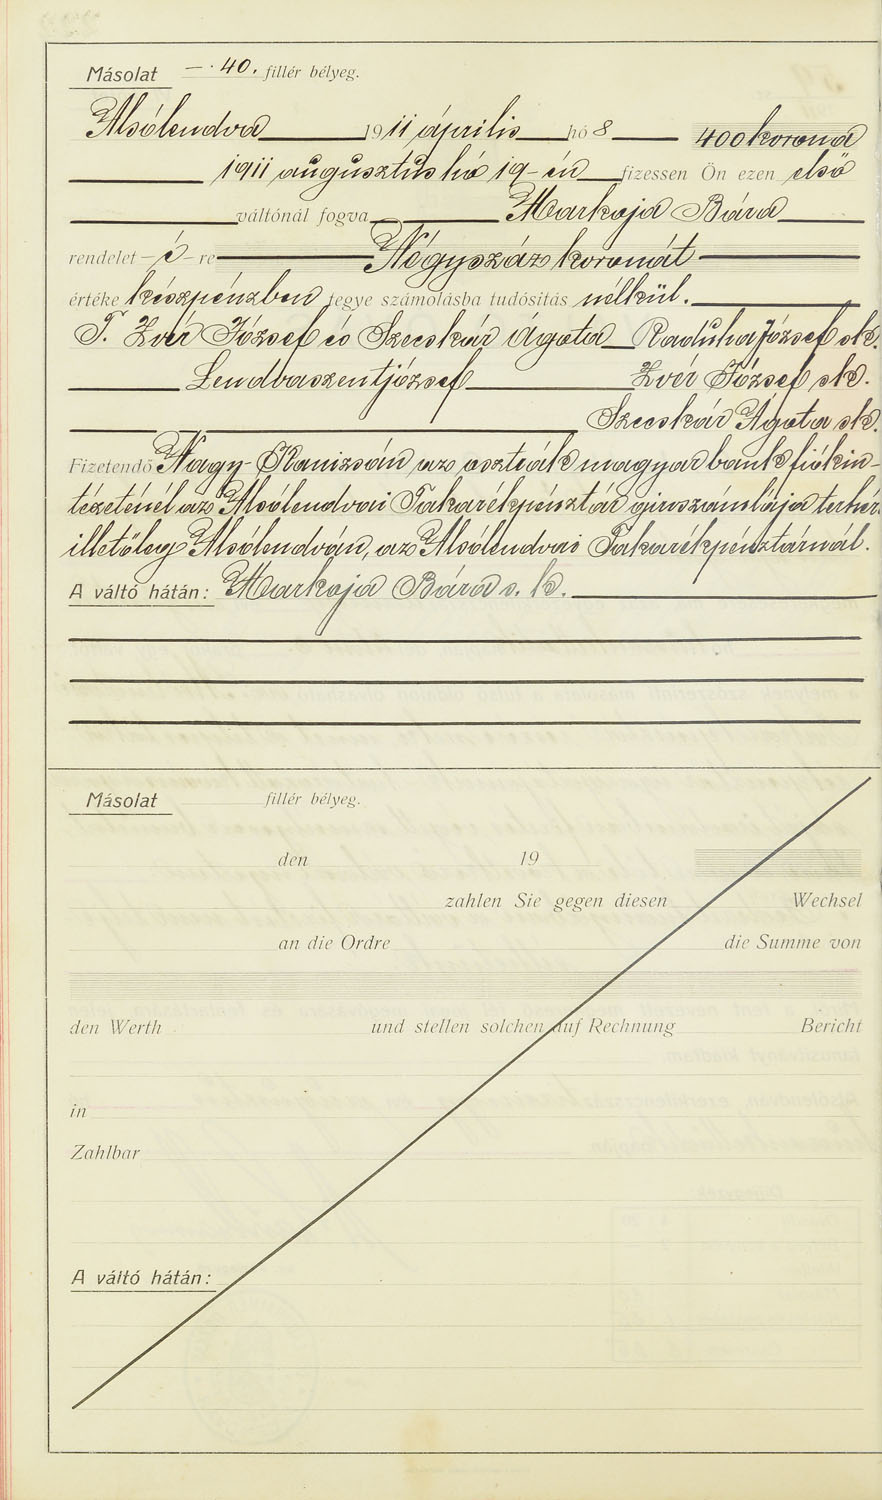 Másolat —·40. fillér bélyeg.
Alsólendva 1911 április hó 8 400 korona
1911 augusztus hó 19-én fizessen Ön ezen első
váltónál fogva Markoja Bára
rendelet -é- re Négyszáz koronát
értéke készpénzben tegye számolásba tudósitás nélkül.
T. Zvér József és Szecskár Ágota Raduha József sk.
Lendvaszentjózsef Zvér József sk.
Szecskár Ágota sk.
Fizetendő Nagy-Kanizsán az osztrák magyar bank fiókin-
tézeténél az Alsólendvai Takarékpénztár giroszámlája terhér
illetőleg Alsólendván, az Alsólendvai Takarékpénztárnál.
A váltó hátán: Markoja Bára s. k.
Másolat fillér bélyeg.
den 19
zahlen Sie gegen diesen Wechsel
an die Ordre die Summe von
den Werth und stellen solchen auf Rechnung Bericht
in
Zahlbar
A váltó hátán: